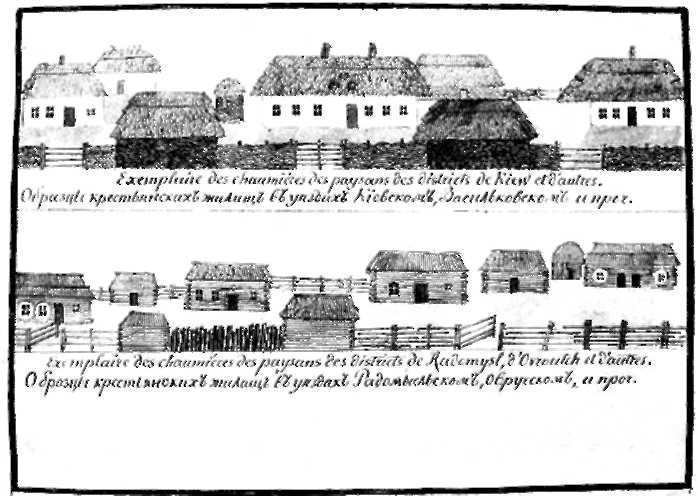 Exemplaire des chaumières des paysans des districts de Kiew et d'autres.
Образцы крестьянскихъ жилищъ въ уѣздахъ Кіевскомъ, Васильковскомъ и проч.
Exemplaire des chaumières des paysans des districts de Radomysl, d'Ovroutch et d'autres.
Образцы крестьянскихъ жилищъ въ уѣздахъ Радомысльскомъ, Овручскомъ, и проч.